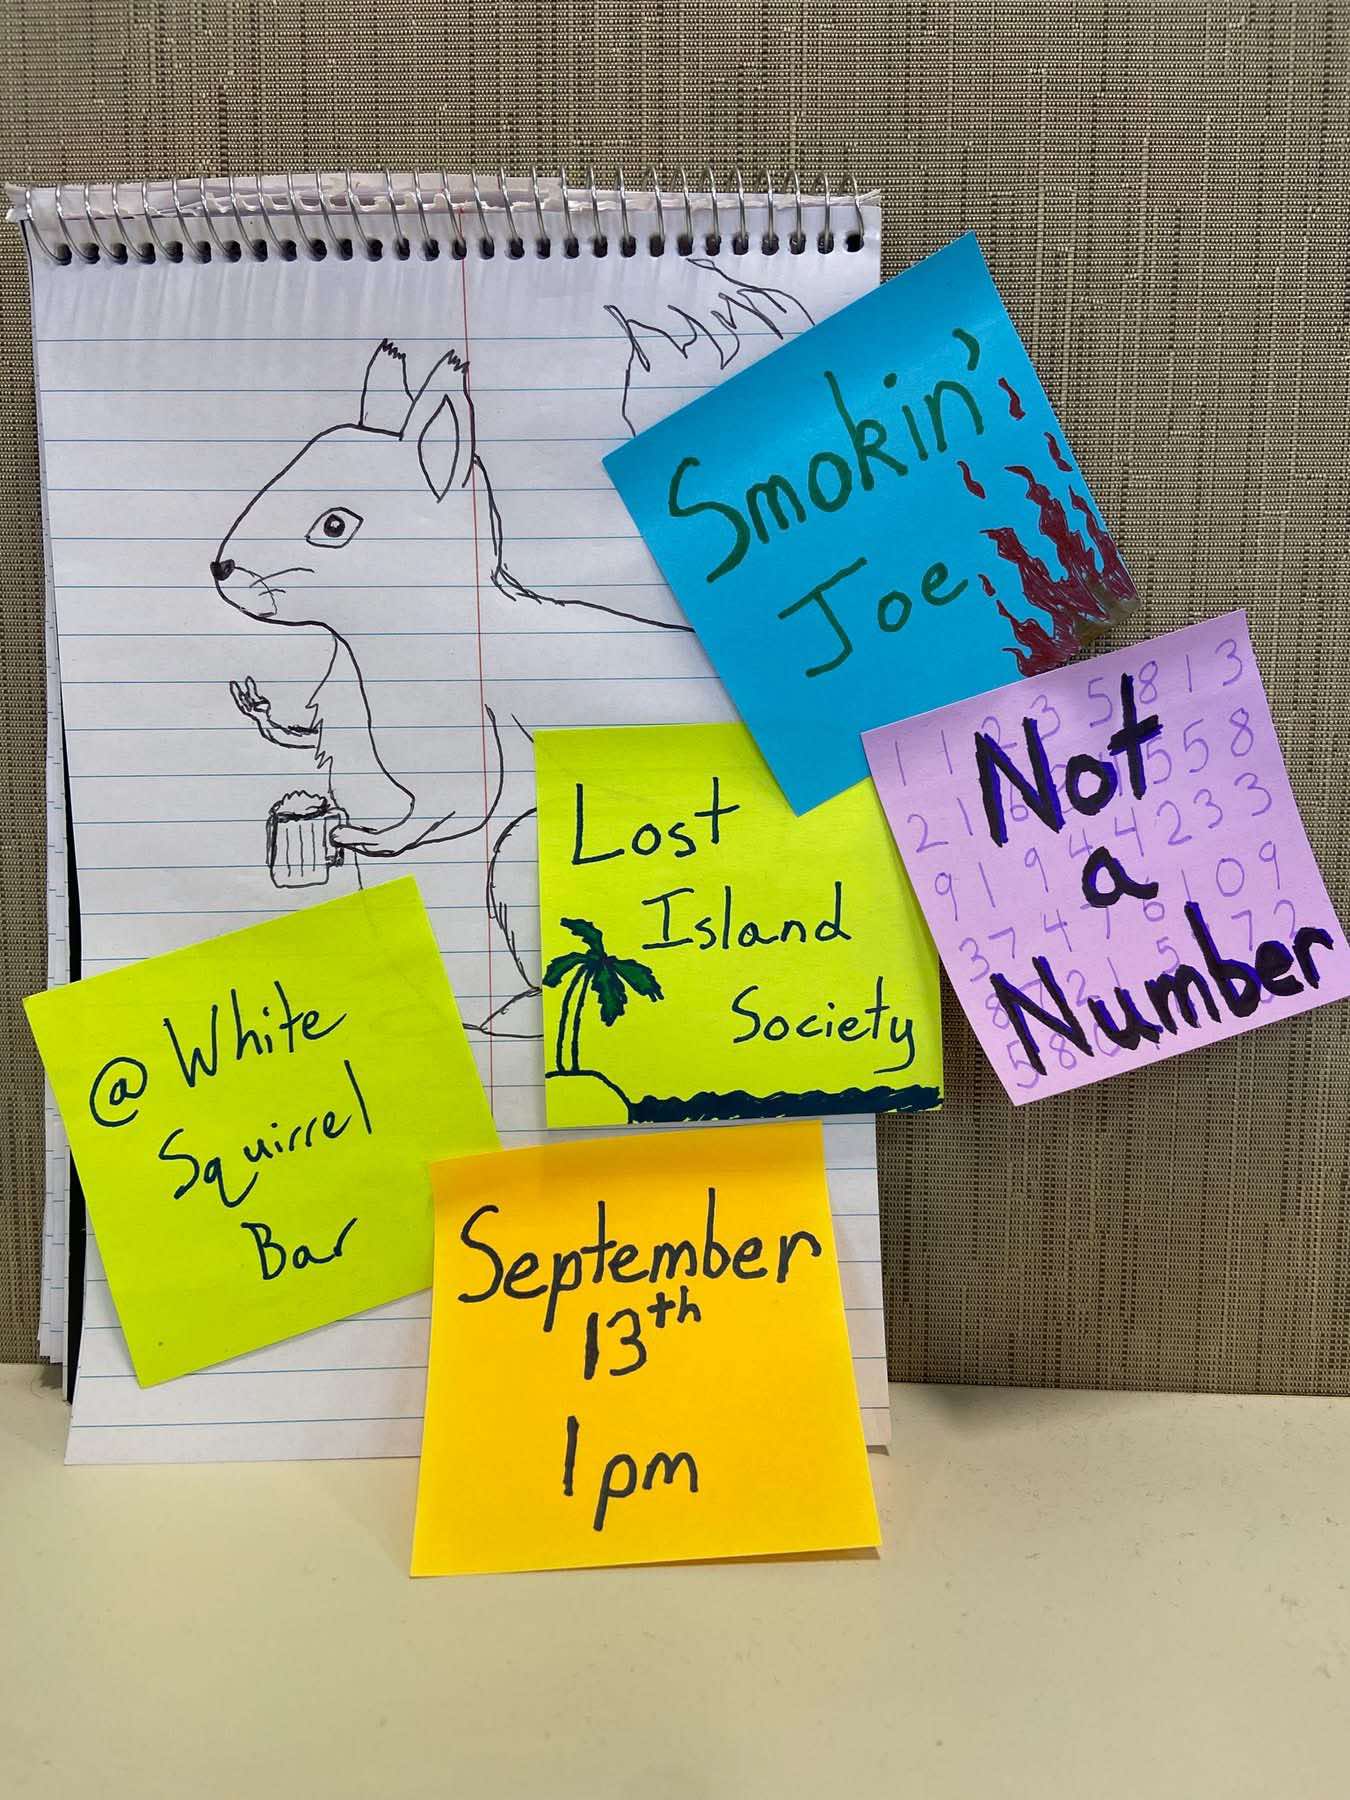 Smokin'
Joe
Not
a
Number
1 1 2 3 5 8 1 3
Lost
Island
Society
@ White
Squirrel
Bar
September
13th
1 pm